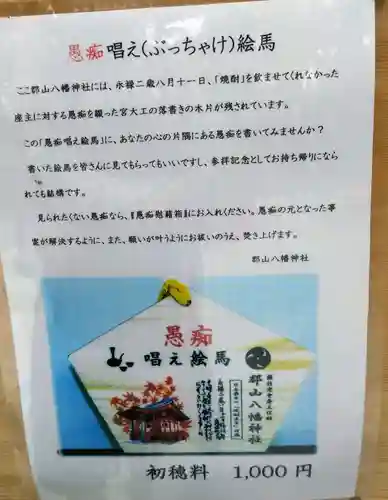 愚痴唱え(ぶっちゃけ)絵馬
ここ郡山八幡神社には、永禄二歳八月十一日、「焼酎」を飲ませてくれなかった
座主に対する愚痴を綴った宮大工の落書きの木片が残されています。
この「愚痴唱え絵馬」に、あなたの心の片隅にある愚痴を書いてみませんか?
書いた絵馬を皆さんに見てもらってもいいですし、参拝記念としてお持ち帰りになら
れても結構です。
見られたくない愚痴なら、『愚痴慰藉箱』にお入れください。愚痴の元となった事
案が解決するように、また、願いが叶うようにお祓いのうえ、焚き上げます。
郡山八幡神社
愚痴
唱え絵馬
郡山八幡神社
初穂料 1,000円